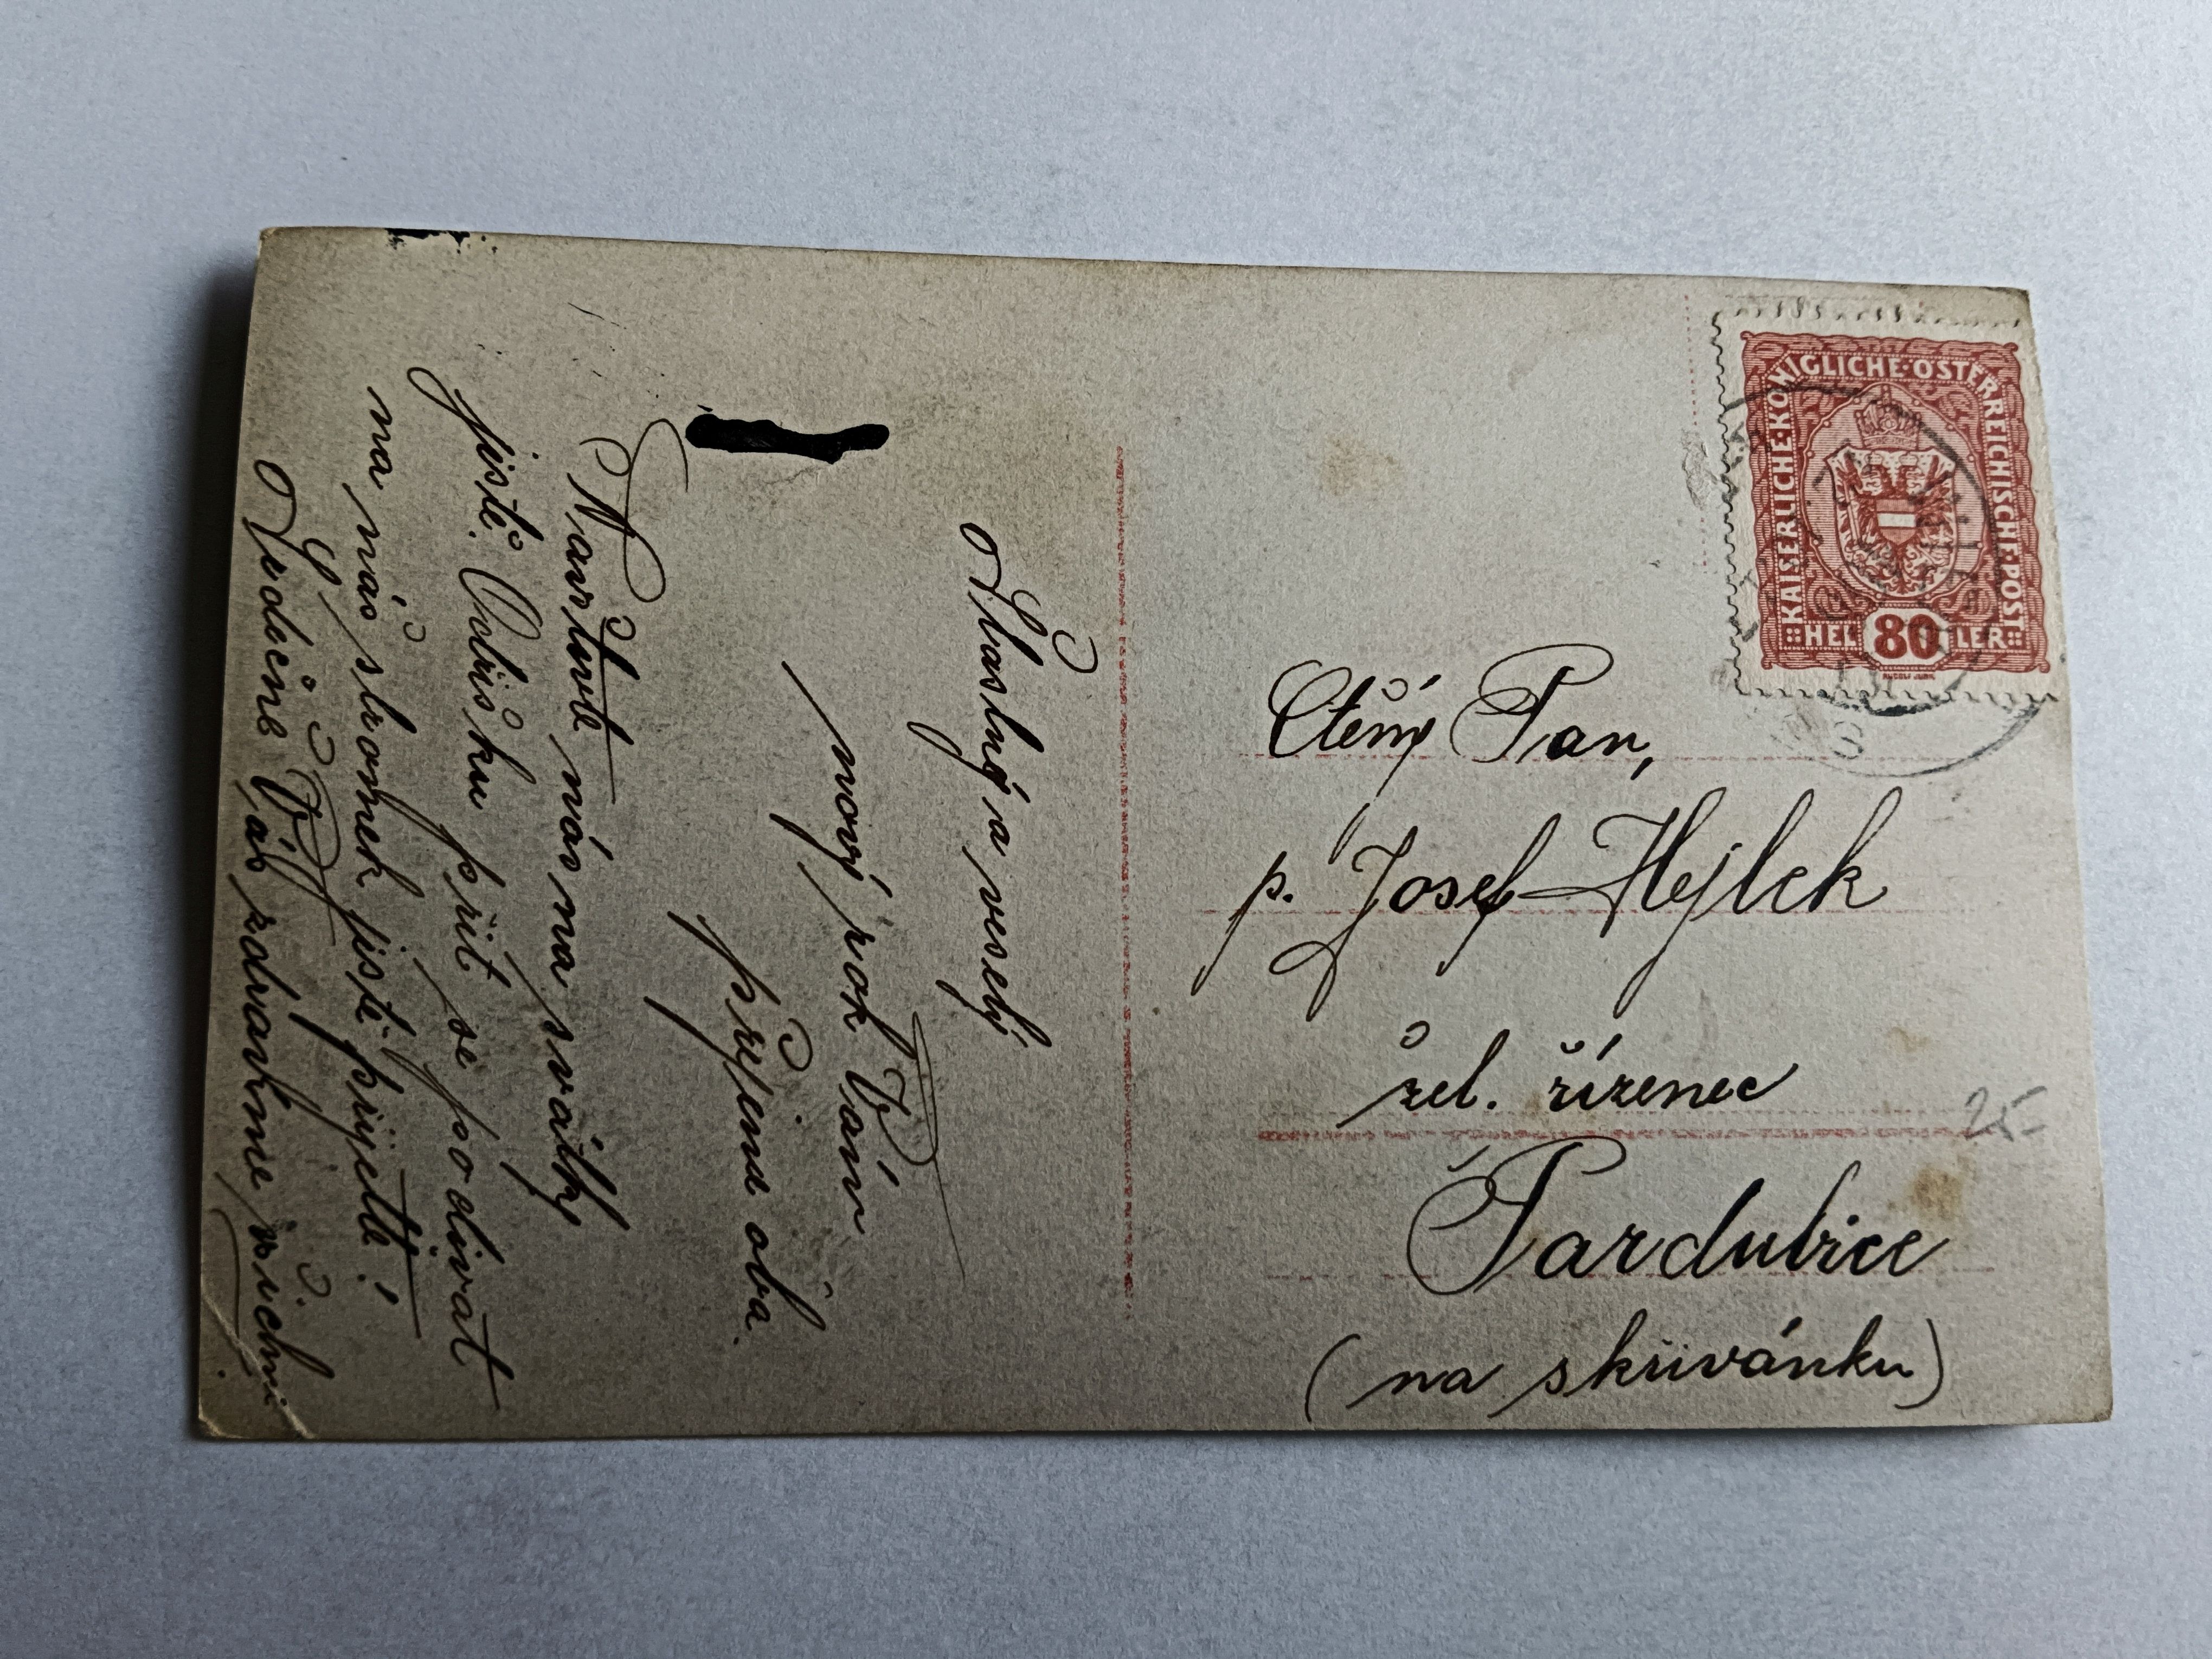 Šťastný a veselý
nový rok Vám
přejeme oba.
Navštivte nás na svátky
jistě. Oolrišku přiit se podívat
na náš stromek jistě přijeďte!
Srdečně Vás zdravíme všichni
KAISERLICHE·KÖNIGLICHE·ÖSTERREICHISCHE·POST
HELLER 80
RUDOLF JUNK
Ctěný Pan,
p. Josef Hejlek
žel. řízenec
Pardubice
(na skřivánku)
25-